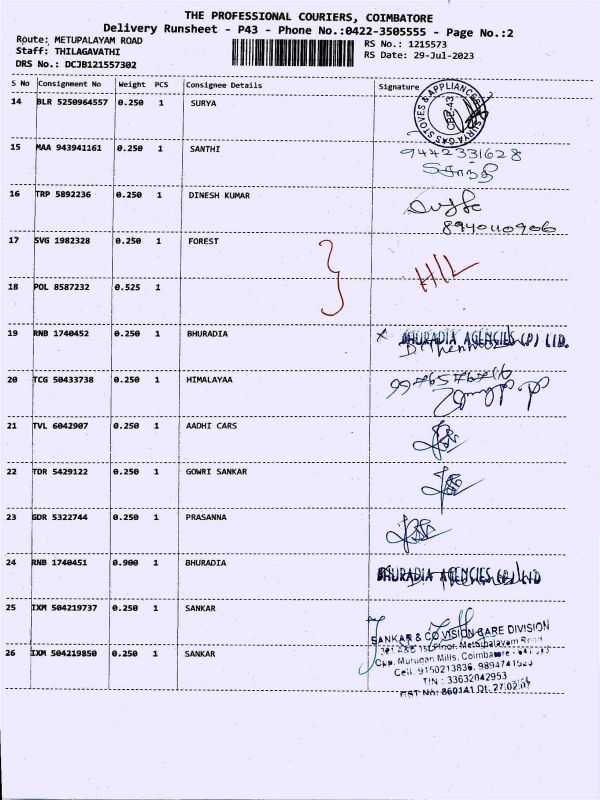 THE PROFESSIONAL COURIERS, COIMBATORE
Delivery Runsheet - P43 - Phone No.:0422-3505555 - Page No.:2
Route: METUPALAYAM ROAD RS No.: 1215573
Staff: THILAGAVATHI RS Date: 29-Jul-2023
DRS No.: DCJB121557302
S No Consignment No Weight PCS Consignee Details Signature
14 BLR 5250964557 0.250 1 SURYA
SURYA GAS STOVES & APPLIANCES CBE-43
15 MAA 943941161 0.250 1 SANTHI 9442331628
சாந்தி
16 TRP 5892236 0.250 1 DINESH KUMAR
8940110906
17 SVG 1982328 0.250 1 FOREST
H/L
18 POL 8587232 0.525 1
19 RNB 1740452 0.250 1 BHURADIA BHURADIA AGENCIES (P) LTD.
20 TCG 50433738 0.250 1 HIMALAYAA
21 TVL 6042907 0.250 1 AADHI CARS
22 TDR 5429122 0.250 1 GOWRI SANKAR
23 GDR 5322744 0.250 1 PRASANNA
24 RNB 1740451 0.900 1 BHURADIA BHURADIA AGENCIES (P) LTD
25 IXM 504219737 0.250 1 SANKAR
SANKAR & CO VISION CARE DIVISION
1st Floor, Mettupalayam Road
26 IXM 504219850 0.250 1 SANKAR Opp. Murugan Mills, Coimbatore -
Cell: 9150213836, 9894741523
TIN : 33632042953
CST No: 860141 Dt. 27.02.07